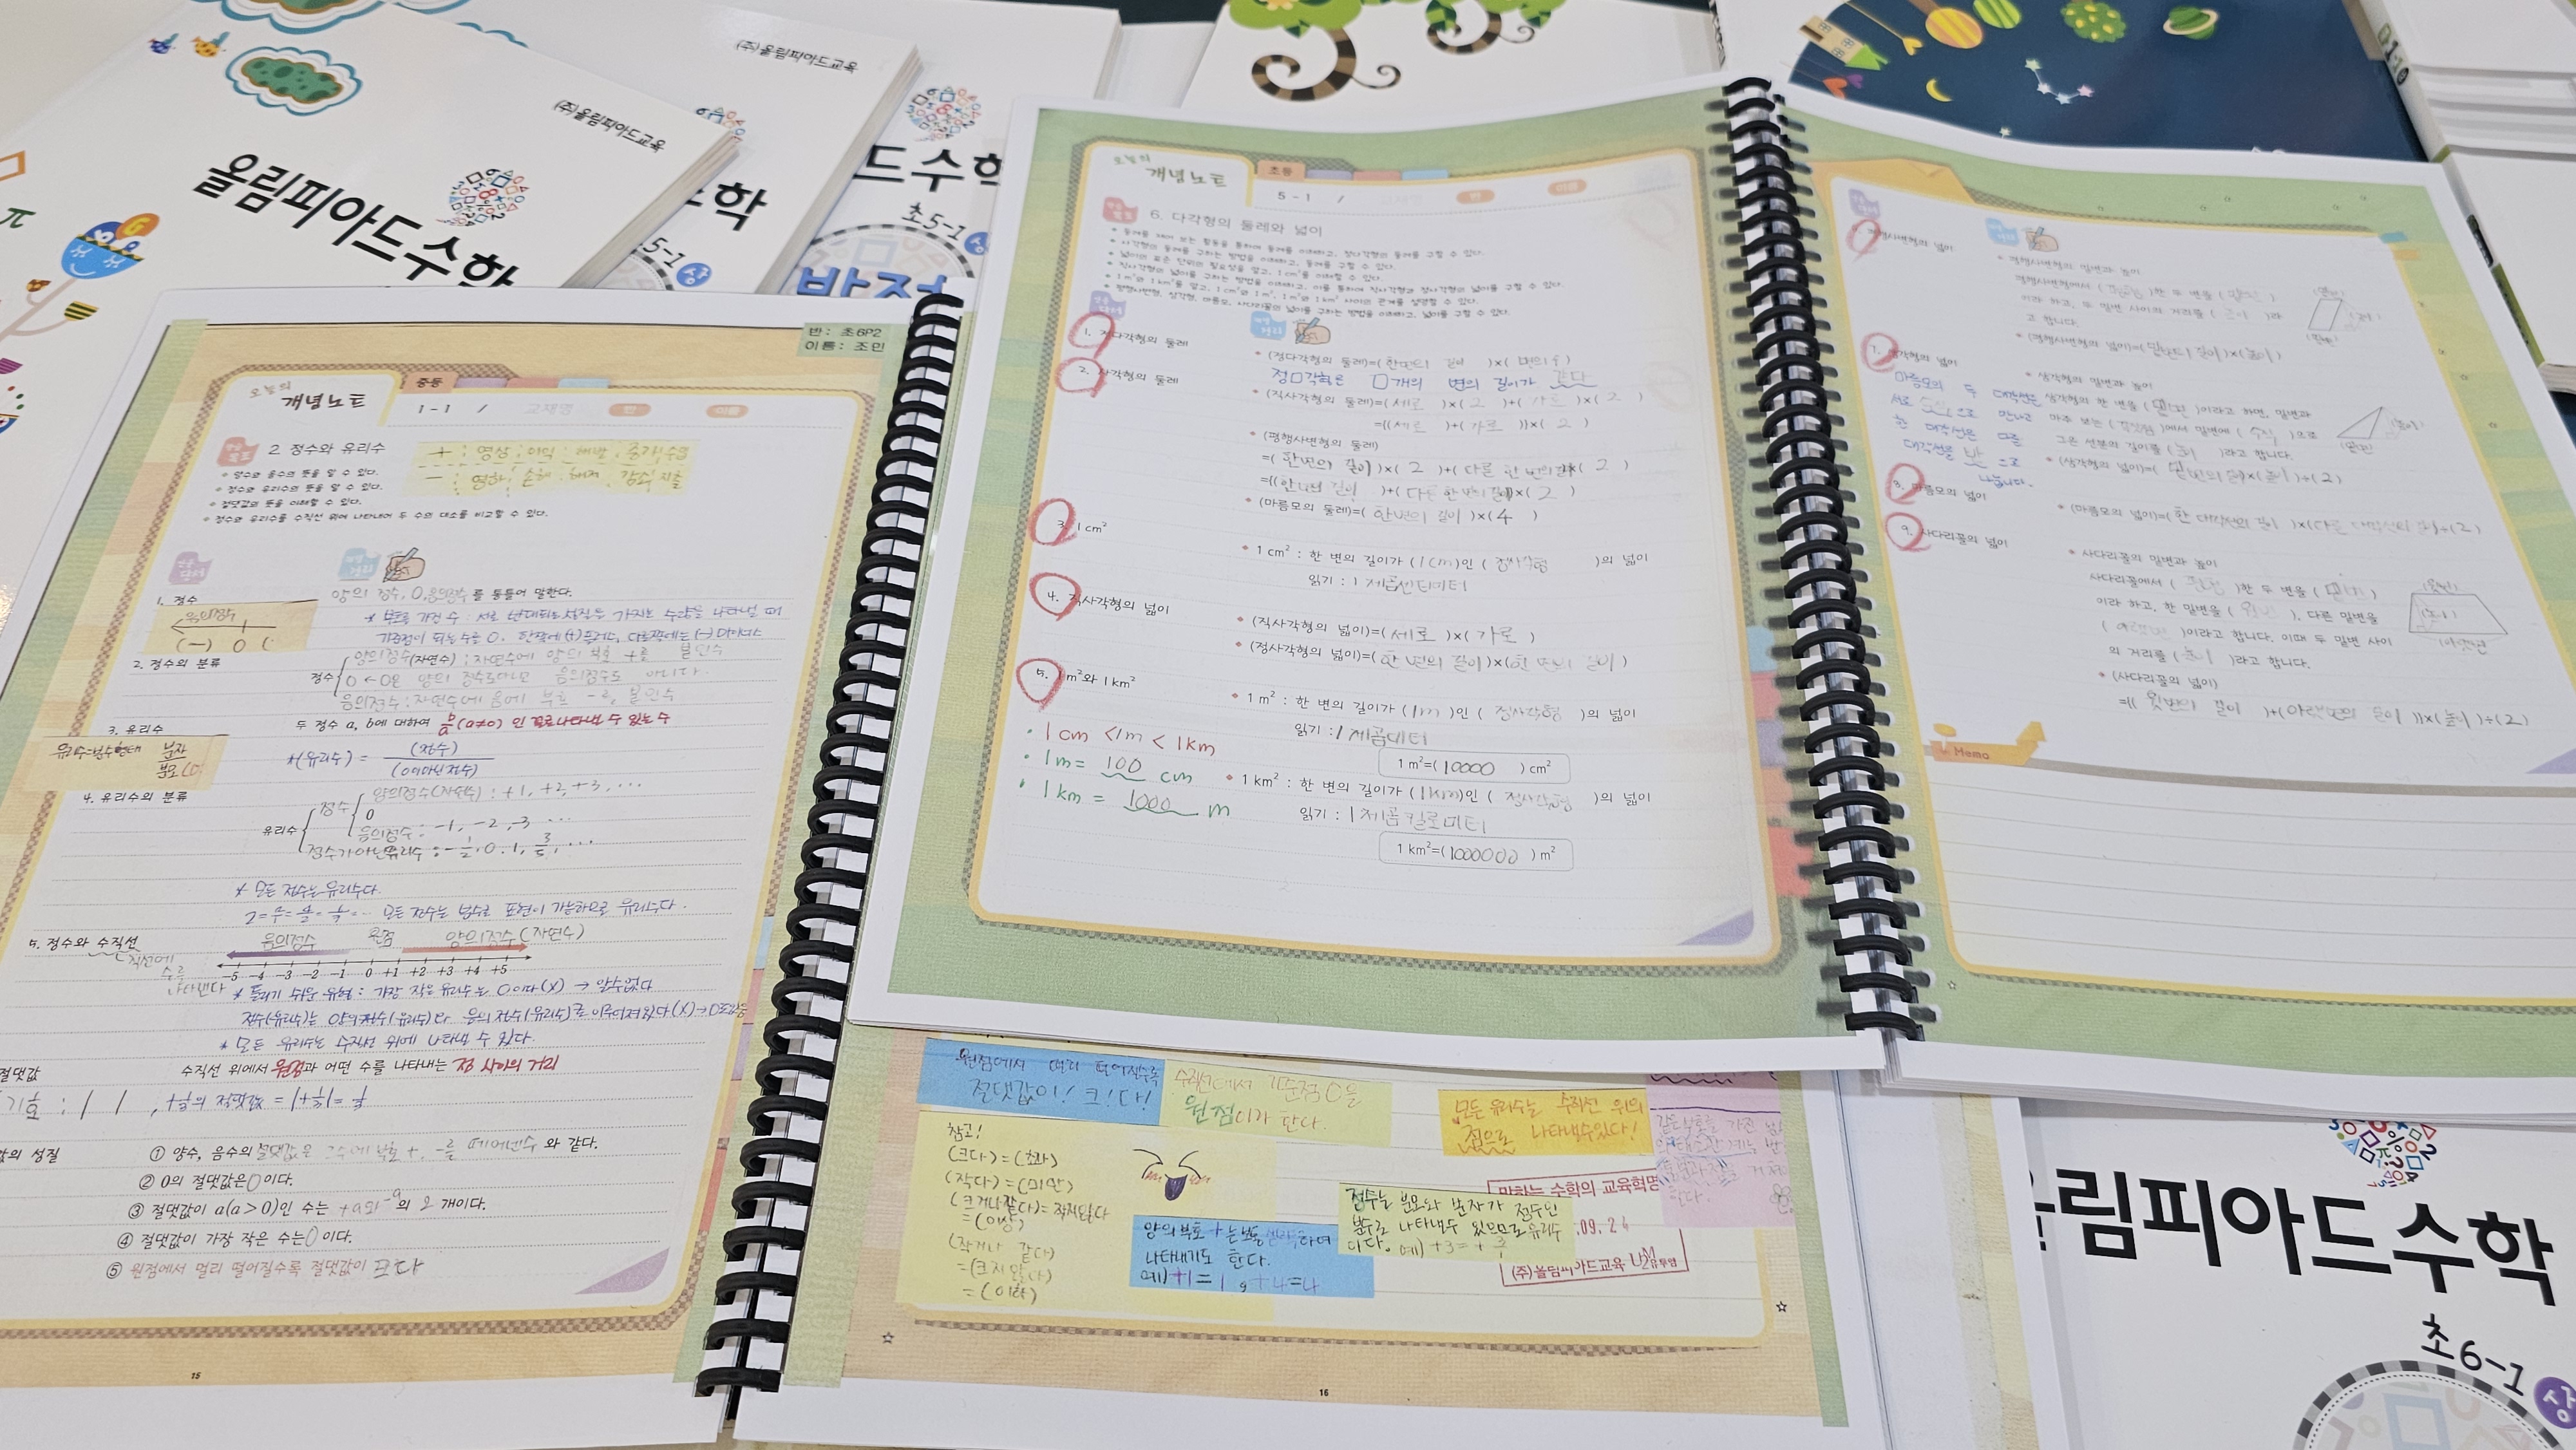 (주)올림피아드교육
올림피아드수학
(주)올림피아드교육
수학
초5-1 상
드수학
초5-1 상
반: 초6P2
이름: 조민
오늘의
개념노트
중등
1-1 /
교재명
반
이름
2 정수와 유리수
양수와 음수의 뜻을 알 수 있다.
정수와 유리수의 뜻을 알 수 있다.
절댓값의 뜻을 이해할 수 있다.
정수와 유리수를 수직선 위에 나타내어 두 수의 대소를 비교할 수 있다.
+ : 영상, 이익, 해발, 증가, 수입
- : 영하, 손해, 해저, 감소, 지출
1. 정수
양의 정수, 0, 음의정수를 통틀어 말한다.
음의정수
(-) 0 (
* 부호를 가진 수 : 서로 반대되는 성질을 가지는 수량을 나타낼 때
기준점이 되는 수를 0. 한쪽에 (+)플러스, 다른쪽에는 (-) 마이너스
2. 정수의 분류
정수
양의정수(자연수) : 자연수에 양의 부호 +를 붙인수
0 ← 0은 양의 정수도아니고 음의정수도 아니다.
음의정수 : 자연수에 음에 부호 -를, 붙인수
3. 유리수
두 정수 a, b에 대하여 b/a (a≠0) 인 꼴로나타낼 수 있는 수
유리수=분수형태 분자
*(유리수) = (정수)/(0이아닌정수)
4. 유리수의 분류
유리수
정수
양의정수(자연수) : +1, +2, +3, ...
0
음의정수 : -1, -2, -3 ...
정수가아닌유리수
* 모든 정수는 유리수다.
모든 정수는 분수로 표현이 가능하므로 유리수다.
5. 정수와 수직선
직선에
수를
나타낸다
음의정수 원점 양의정수(자연수)
-5 -4 -3 -2 -1 0 +1 +2 +3 +4 +5
* 틀리기 쉬운 유형 : 가장 작은 유리수는 0이다(X) → 알수없다
정수(유리수)는 양의정수(유리수)와 음의 정수(유리수)로 이루어져있다(X)→0도있음
* 모든 유리수는 수직선 위에 나타낼 수 있다.
절댓값
수직선 위에서 원점과 어떤 수를 나타내는 점 사이의 거리
기호 : | |
의 성질
① 양수, 음수의 절댓값은 그수에 부호 +, -를 떼어낸수 와 같다.
② 0의 절댓값은 0이다.
③ 절댓값이 a(a>0)인 수는 +a와 -a의 2 개이다.
④ 절댓값이 가장 작은 수는 0이다.
⑤ 원점에서 멀리 떨어질수록 절댓값이 크다
15
오늘의
개념노트
초등
5-1 /
반
이름
6. 다각형의 둘레와 넓이
1. 정다각형의 둘레
(정다각형의 둘레)=(한변의 길이)×(변의수)
정□각형은 □개의 변의 길이가 같다
2. 사각형의 둘레
(직사각형의 둘레)=(세로)×(2)+(가로)×(2)
={(세로)+(가로)}×(2)
(평행사변형의 둘레)
=(한변의 길이)×(2)+(다른 한 변의길이)×(2)
={(한변의 길이)+(다른 한 변의길이)}×(2)
(마름모의 둘레)=(한변의 길이)×(4)
3. 1 cm²
1 cm² : 한 변의 길이가 (1cm)인 (정사각형)의 넓이
읽기 : 1 제곱센티미터
4. 직사각형의 넓이
(직사각형의 넓이)=(세로)×(가로)
(정사각형의 넓이)=(한 변의 길이)×(한 변의 길이)
5. 1 m²와 1 km²
1 m² : 한 변의 길이가 (1m)인 (정사각형)의 넓이
읽기 : 1 제곱미터
1 m²=(10000) cm²
· 1cm < 1m < 1km
· 1m = 100 cm
· 1km = 1000 m
1 km² : 한 변의 길이가 (1km)인 (정사각형)의 넓이
읽기 : 1 제곱킬로미터
1 km²=(1000000) m²
평행사변형의 넓이
평행사변형의 밑변과 높이
평행사변형에서 (평행)한 두 변을 (밑변)
이라 하고, 두 밑변 사이의 거리를 (높이)라
고 합니다.
(평행사변형의 넓이)=(밑변의 길이)×(높이)
7. 삼각형의 넓이
삼각형의 밑변과 높이
삼각형의 한 변을 (밑변)이라고 하면, 밑변과
마주 보는 (꼭짓점)에서 밑변에 (수직)으로
그은 선분의 길이를 (높이)라고 합니다.
(삼각형의 넓이)=(밑변의 길이)×(높이)÷(2)
마름모의 두 대각선은
서로 으로 만나고
한 대각선은 다른
대각선을 반으로
나눕니다.
8. 마름모의 넓이
(마름모의 넓이)=(한 대각선의 길이)×(다른 대각선의 길이)÷(2)
9. 사다리꼴의 넓이
사다리꼴의 밑변과 높이
사다리꼴에서 (평행)한 두 변을 (밑변)
이라 하고, 한 밑변을 (윗변), 다른 밑변을
(아랫변)이라고 합니다. 이때 두 밑변 사이
의 거리를 (높이)라고 합니다.
(사다리꼴의 넓이)
={(윗변의 길이)+(아랫변의 길이)}×(높이)÷(2)
Memo
원점에서 멀리 떨어질수록
절댓값이! 크!다!
수직선에서 기준점 0을
원점이라 한다.
모든 유리수는 수직선 위의
점으로 나타낼수있다!
참고!
(크다)=(초과)
(작다)=(미만)
(크거나같다)=작지않다
=(이상)
(작거나 같다)
=(크지않다)
=(이하)
양의 부호 +는보통 생략하여
나타내기도 한다.
예) +1=1, +4=4
정수는 분모와 분자가 정수인
분수로 나타낼수 있으므로 유리수
이다.
말하는 수학의 교육혁명
.09.24
(주)올림피아드교육
16
올림피아드수학
초6-1 상